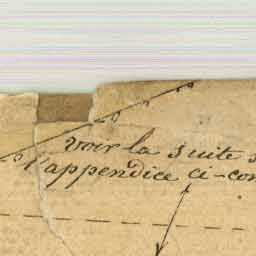 voir la suite
l'appendice ci-con